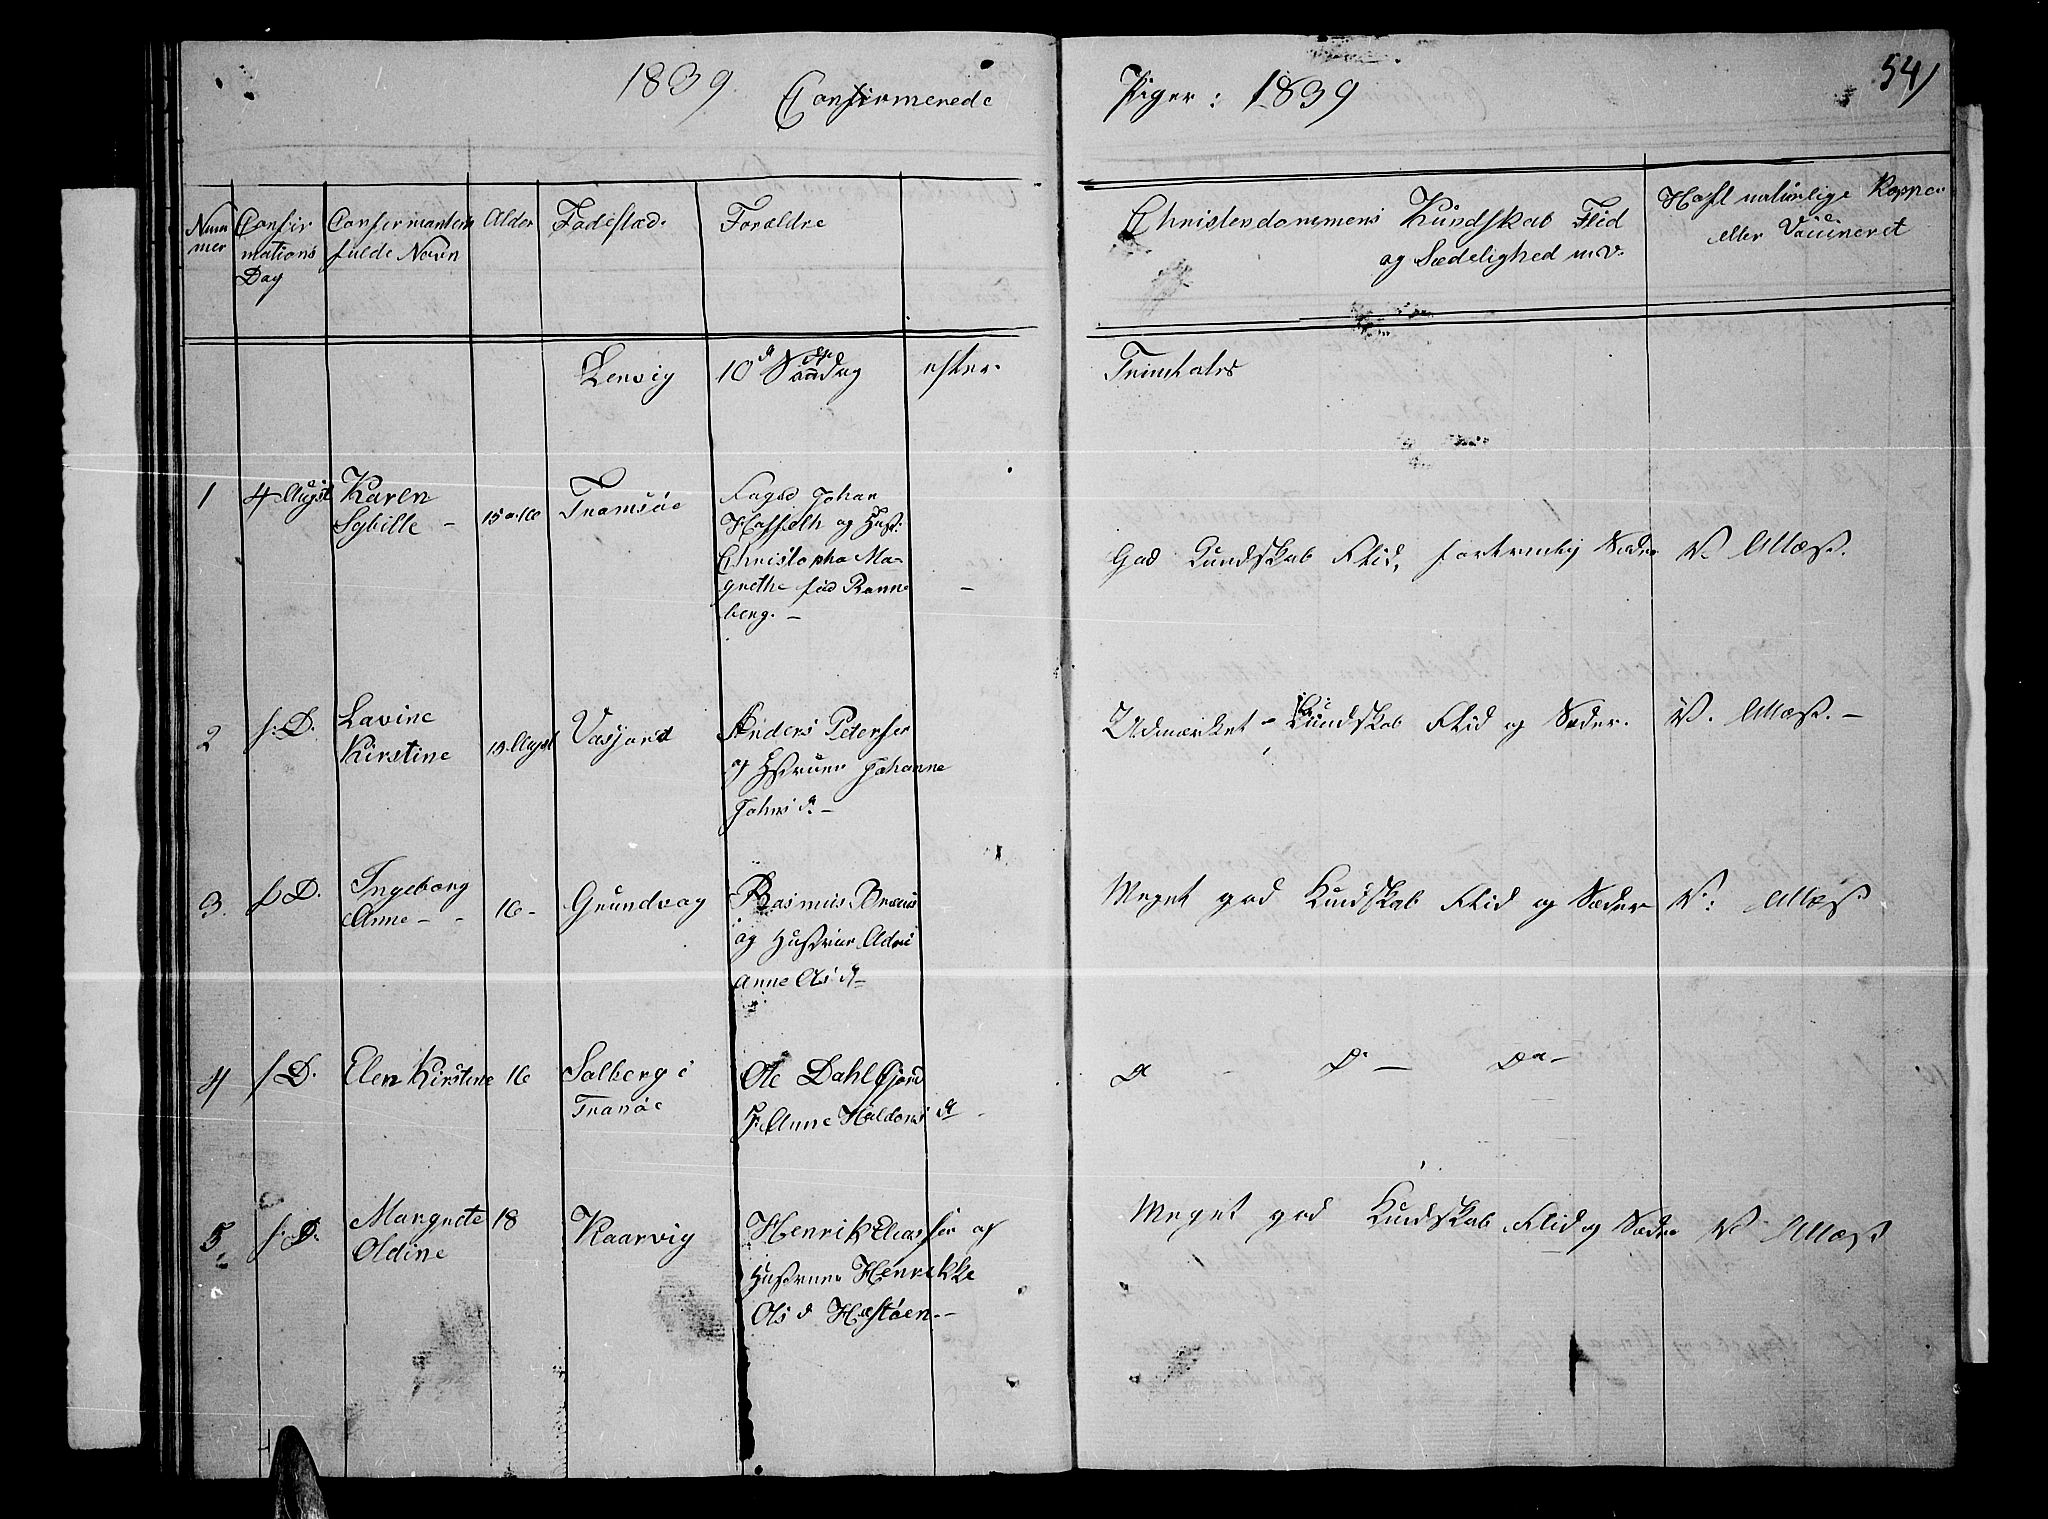 1839. Confirmerede Piger: 1839
54
Num
mer
Confir
mations
Dag
Confirmantens
fulde Navn
Alder
Fødested.
Forældre
Christendommens Kundskab Flid
og Sædelighed m.v.
Havt naturlige Kopper
eller Vaccineret
Lenvig 10d Søndag efter Trinitatis
1 4 August
Karen
Sybille –
15 a. 16
Tromsøe
Foged Johan
og Hust:
Christopha Ma-
grethe fød Ronne
berg. –
God Kundskab Flid, fortrinlig Sæder
V. Attest.
2 s. D.
Lavine
Kirstine
Vasjord
Anders Petersen
og Hustrue Johanne
Johns d. –
Udmærket – Kundskab Flid og Sæder.
V. Attest. –
3. s D.
Ingeborg
Anne –
16 –
Grundvog
Rasmus
og Hustrue Adri
anne Ols d –
Meget god Kundskab Flid og Sæder
V: Attest
4 s D.
Elen Kirstine
16
Solberg i
Tranøe
Ole Dahl
H. Anne Haldors d
D – D – Do –
5 s. D.
Margrete
Oldine
18
Kaarvig
Henrik Eliassen af
Hustrue Henrikke
Ols d Hestøen. –
Meget god Kundskab Flid og Sæder
V. Attest